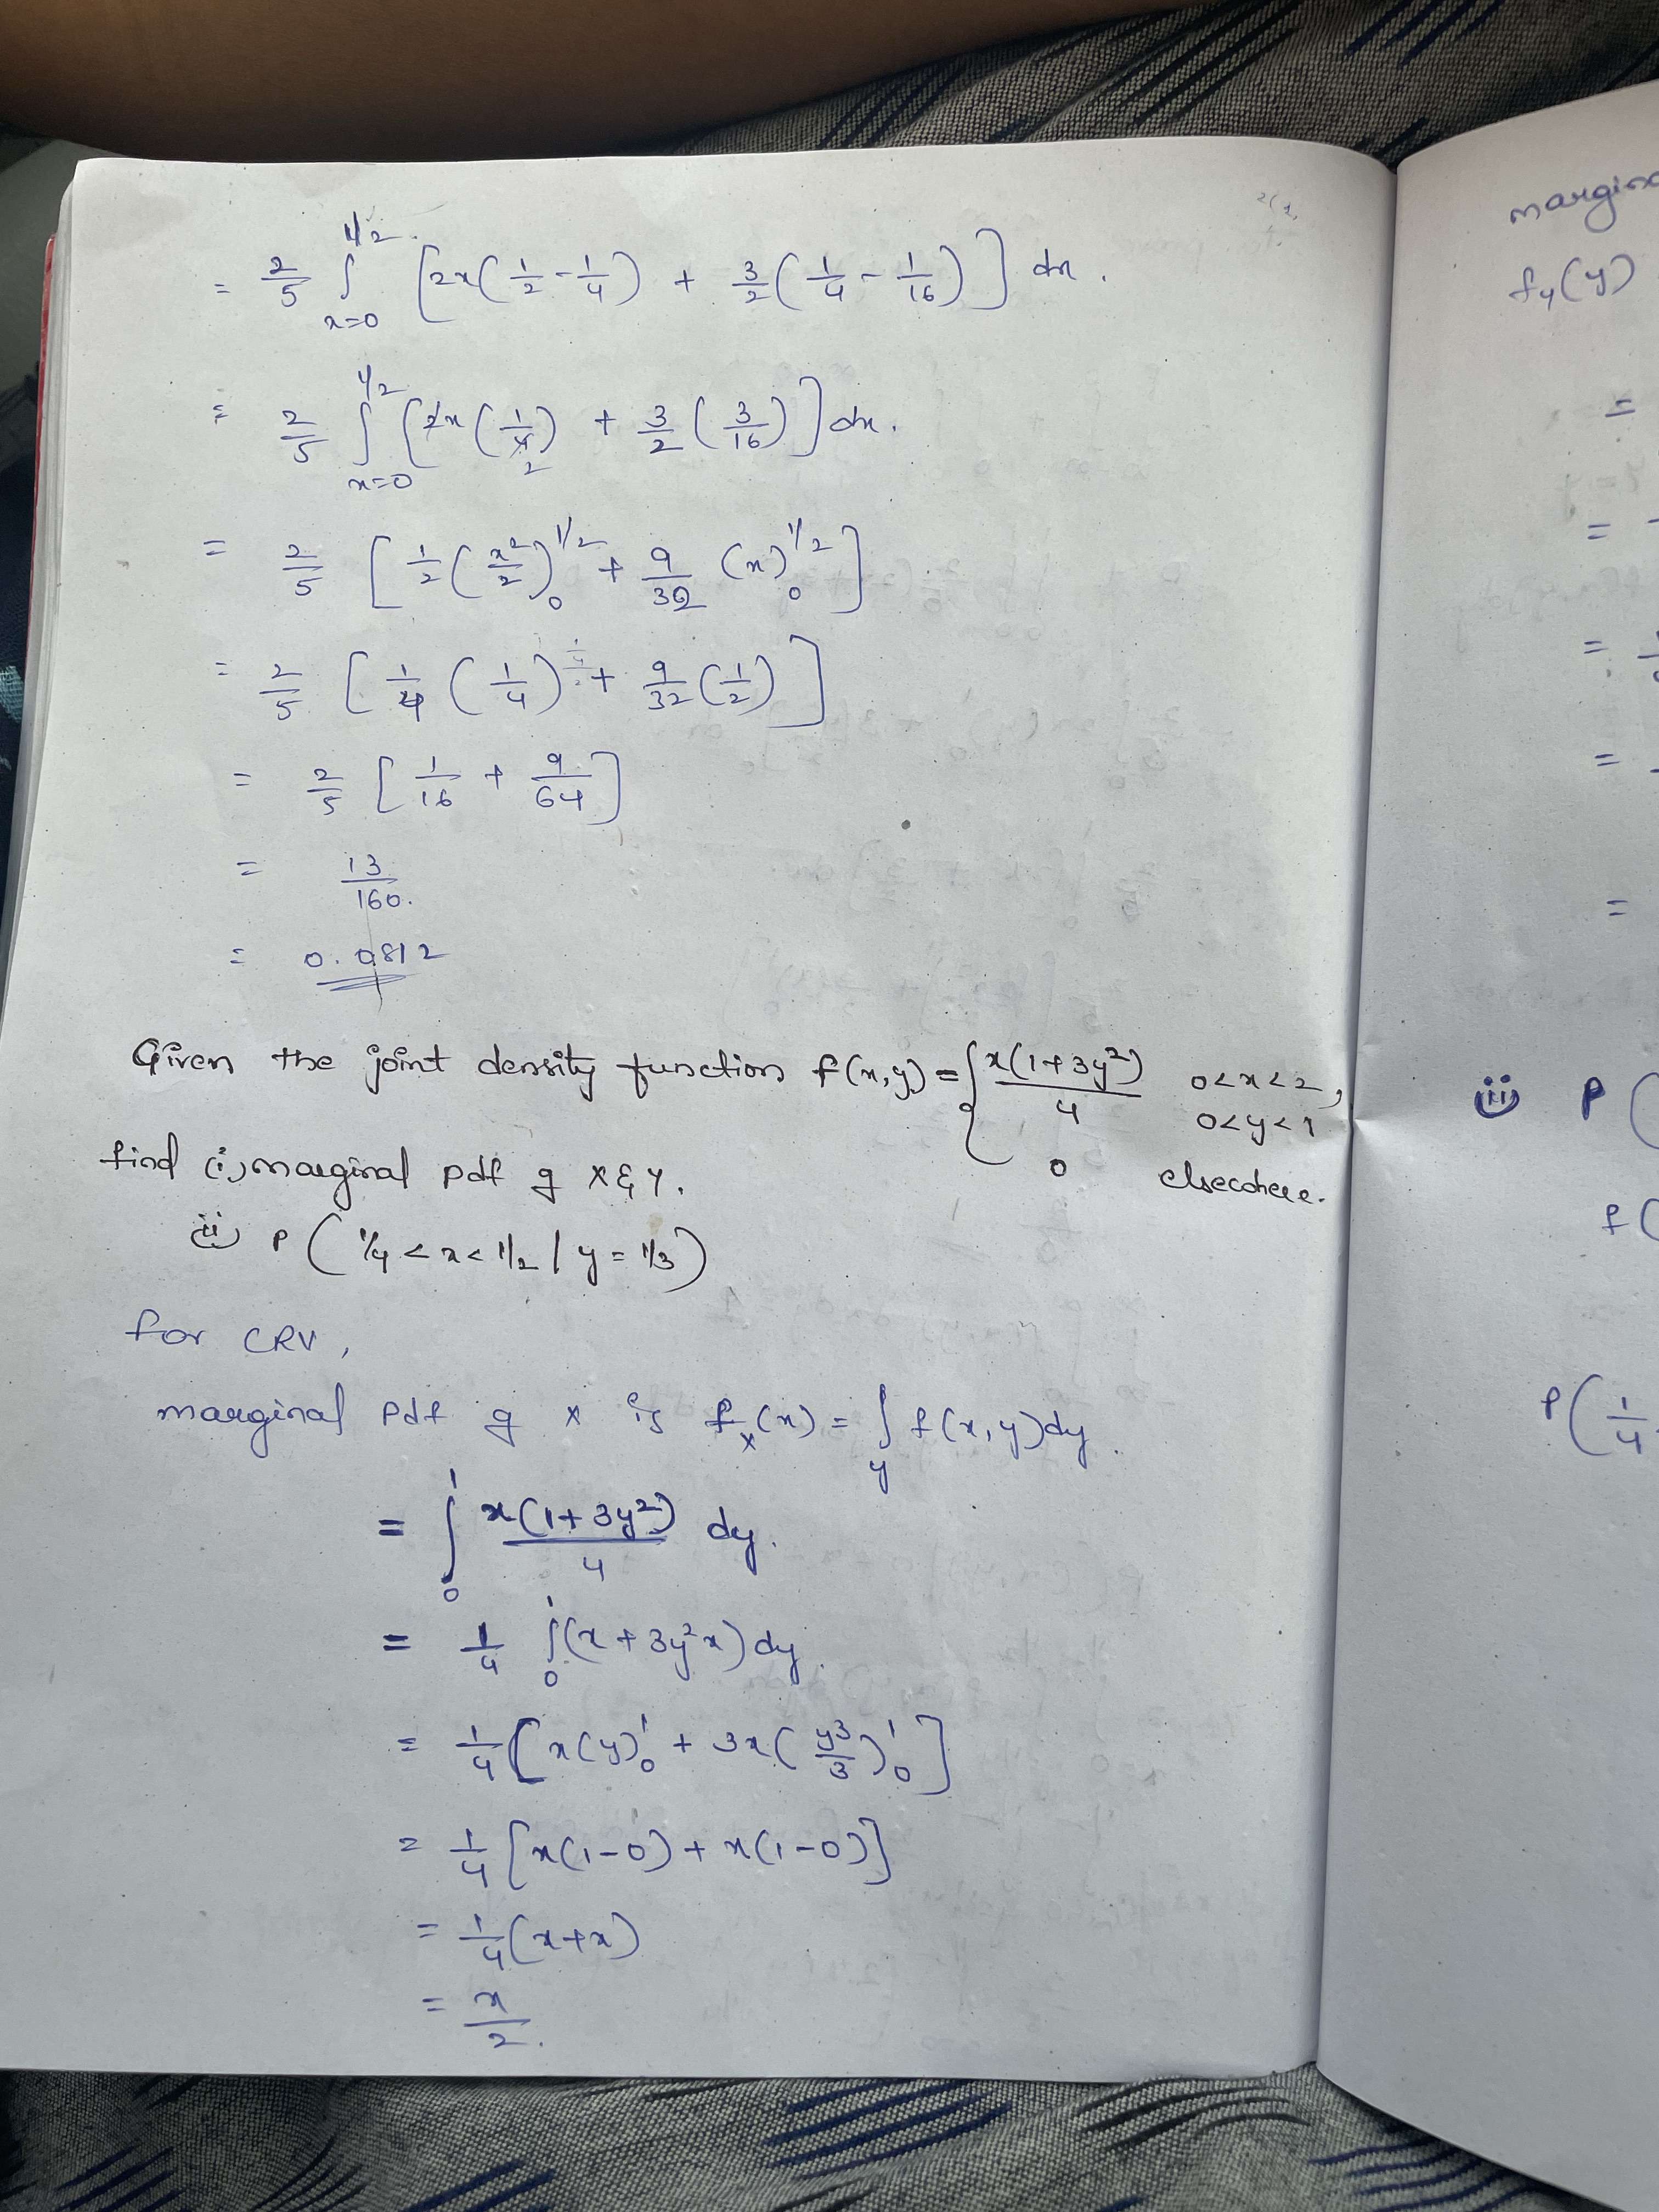 = 2/5 ∫_{x=0}^{1/2} [2x(1/2 - 1/4) + 3/2 (1/4 - 1/16)] dx.
= 2/5 ∫_{x=0}^{1/2} [2x(1/4) + 3/2 (3/16)] dx.
= 2/5 [1/2 (x²/2)_0^{1/2} + 9/32 (x)_0^{1/2}]
= 2/5 [1/4 (1/4) + 9/32 (1/2)]
= 2/5 [1/16 + 9/64]
= 13/160.
= 0.0812
Given the joint density function f(x,y) = { x(1+3y²)/4 0<x<2, 0<y<1
0 elsewhere.
find (i) marginal pdf of X & Y.
(ii) P(1/4 < x < 1/2 | y = 1/3)
for CRV,
marginal pdf of x is f_x(x) = ∫_y f(x,y)dy.
= ∫_0^1 x(1+3y²)/4 dy.
= 1/4 ∫_0^1 (x+3y²x)dy.
= 1/4 [x(y)_0^1 + 3x(y³/3)_0^1]
= 1/4 [x(1-0) + x(1-0)]
= 1/4 (x+x)
= x/2.
f_y(y)
=
=
=
=
=
(ii) P(
f(
P(1/4